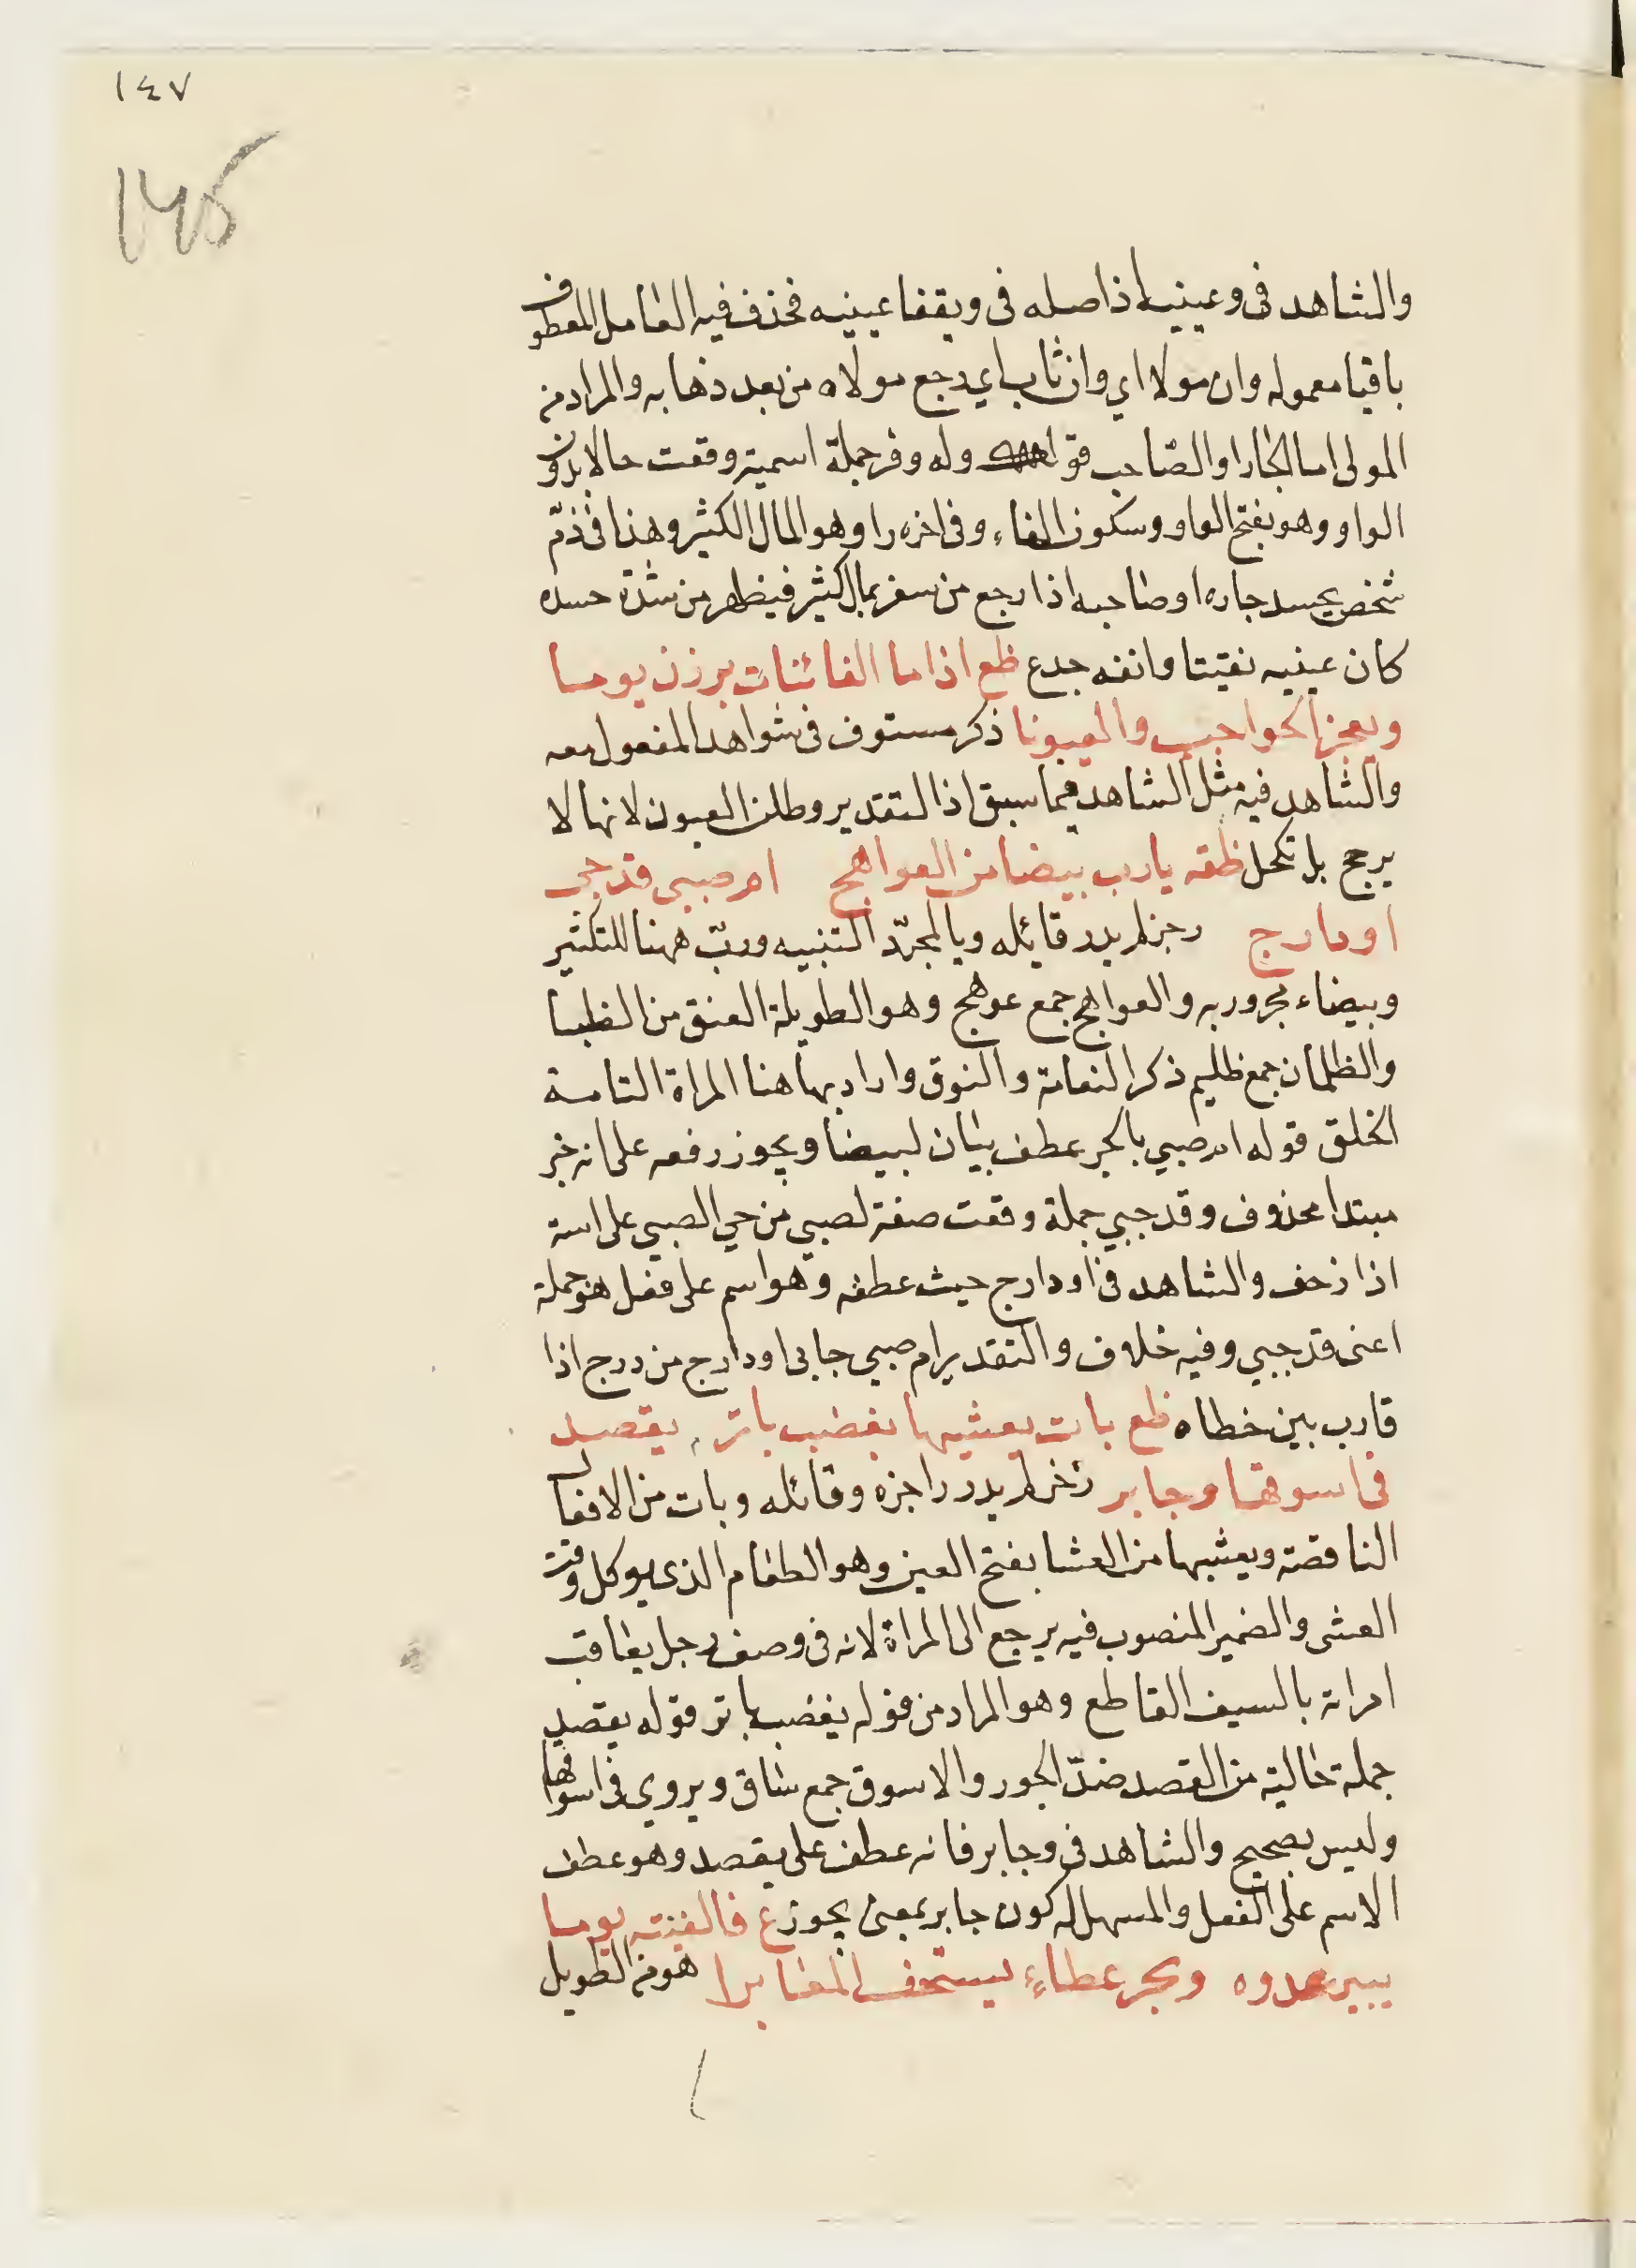 ١٤٧
١٤٥
والشاهد فى وعينيه اذ اصله فى ويقفا عينيه فحذف فيه العامل المعطوف
باقيا معموله وان مولا اي وان ثاب اي رجع مولاه من بعد ذهابه والمراد من
المولى اما الجار او الصاحب قوله وله وفر جملة اسمية وقعت حالا بدون
الواو وهو بفتح الواو وسكون الفاء وفى اخره را وهو المال الكثير وهذا فى ذمّ
شخص يحسد جاره او صاحبه اذا رجع من سفر بمال كثير فيظهر من شدة حسده
كان عينيه نفيتا وانفه جدع ظع اذا ما الغانيات برزن يوما
ويعجز الحواجب والعيونا ذكر مستوف فى شواهد المفعول معه
والشاهد فيه مثل الشاهد فيما سبق اذ التقدير وطلن العيون لانها لا
يرجح بل تكحل ظقه يارب بيضا من العواهج ام صبي قد حبى
او دارج رجز لم يدر قائله ويا لمجرّد التنبيه وربّ ههنا للتكثير
وبيضاء مجرور به والعواهج جمع عوهج وهو الطويلة العنق من الظبا
والظلمان جمع ظليم ذكر النعامة والنوق واراد بها هنا المراة التامة
الخلق قوله ام صبي بالجر عطف بيان لبيضا ويجوز رفعه على انه خبر
مبتدا محذوف وقد حبي جملة وقعت صفة لصبي من حبي الصبي على استه
اذا زحف والشاهد فى او دارج حيث عطفه وهو اسم على فعل هو جملة
اعنى قد حبي وفيه خلاف والتقدير ام صبي حابى او دارج من درج اذا
قارب بين خطاه ظع بات يعشيها بعضب باتر يقصد
فى اسوقها وجابر رجز لم يدر راجزه وقائله وبات من الافعال
الناقصة ويعشيها من العشا بفتح العين وهو الطعام الذى يوكل وقت
العشى والضمير المنصوب فيه يرجع الى المراة لانه فى وصف رجل يعاقب
امراته بالسيف القاطع وهو المراد من قوله بعضب باتر قوله يقصد
جملة حالية من القصد ضدّ الجور والاسوق جمع ساق ويروي فى اسواقها
وليس بصحيح والشاهد فى وجابر فانه عطف على يقصد وهو عطف
الاسم على الفعل والمسهل له كون جابر بمعنى يجوز ع فالفيته يوما
يبير عدوه وبحر عطاء يستخف المعابرا هو من الطويل